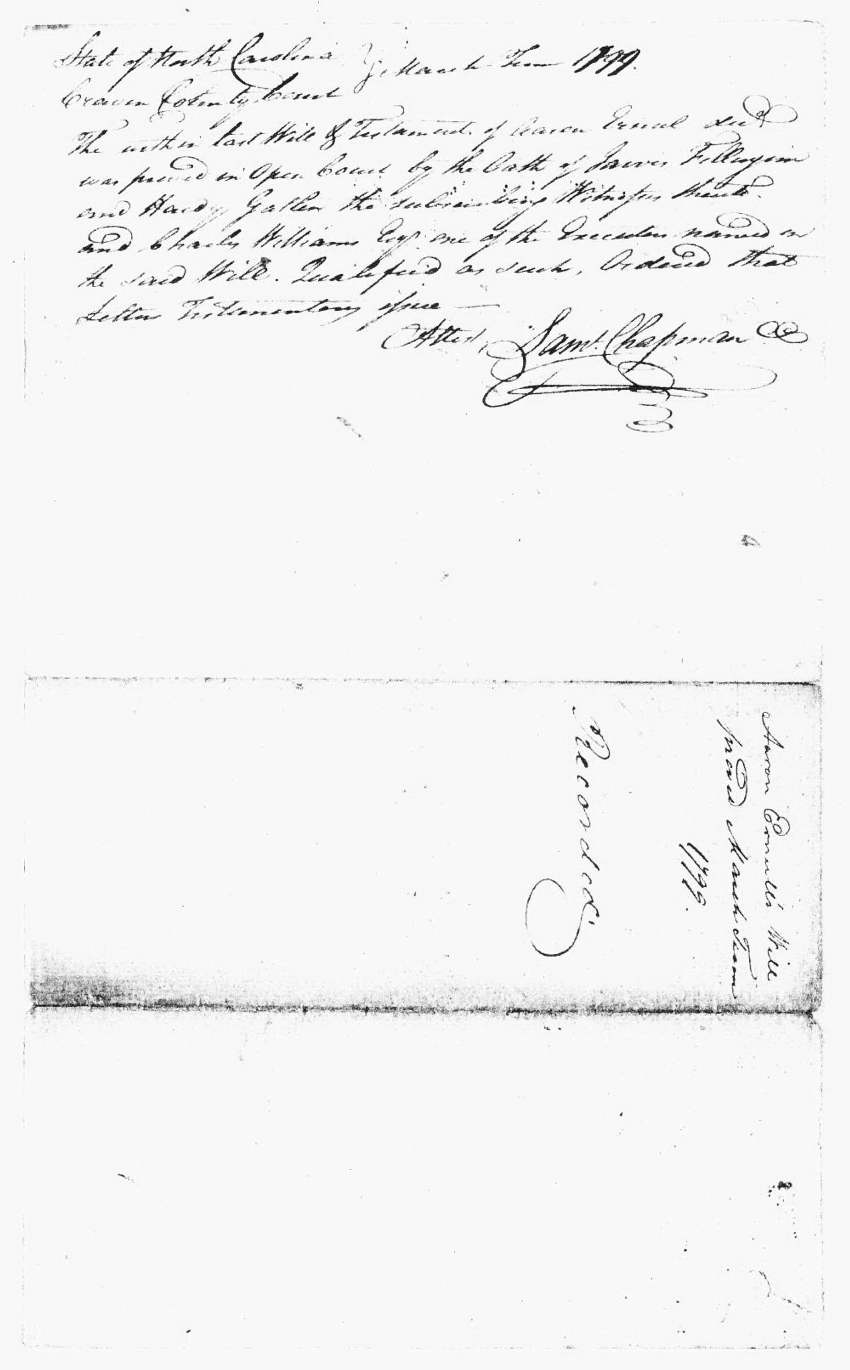 State of North Carolina } March Term 1799.
Craven County Court
The within Last Will & Testament of Aaron Ernul decd
was proved in Open Court by the Oath of Jarvis Fillingim
and Hardy Gatlin the subscribing Witnesses thereto.
and Charles Williams Esqr. one of the Executors named in
the said Will. Qualified as such, Ordered that
Letters Testamentary issue —
Attest, Saml. Chapman CC
Aaron Ernull's Will
proved March Term
1799.
Recorded